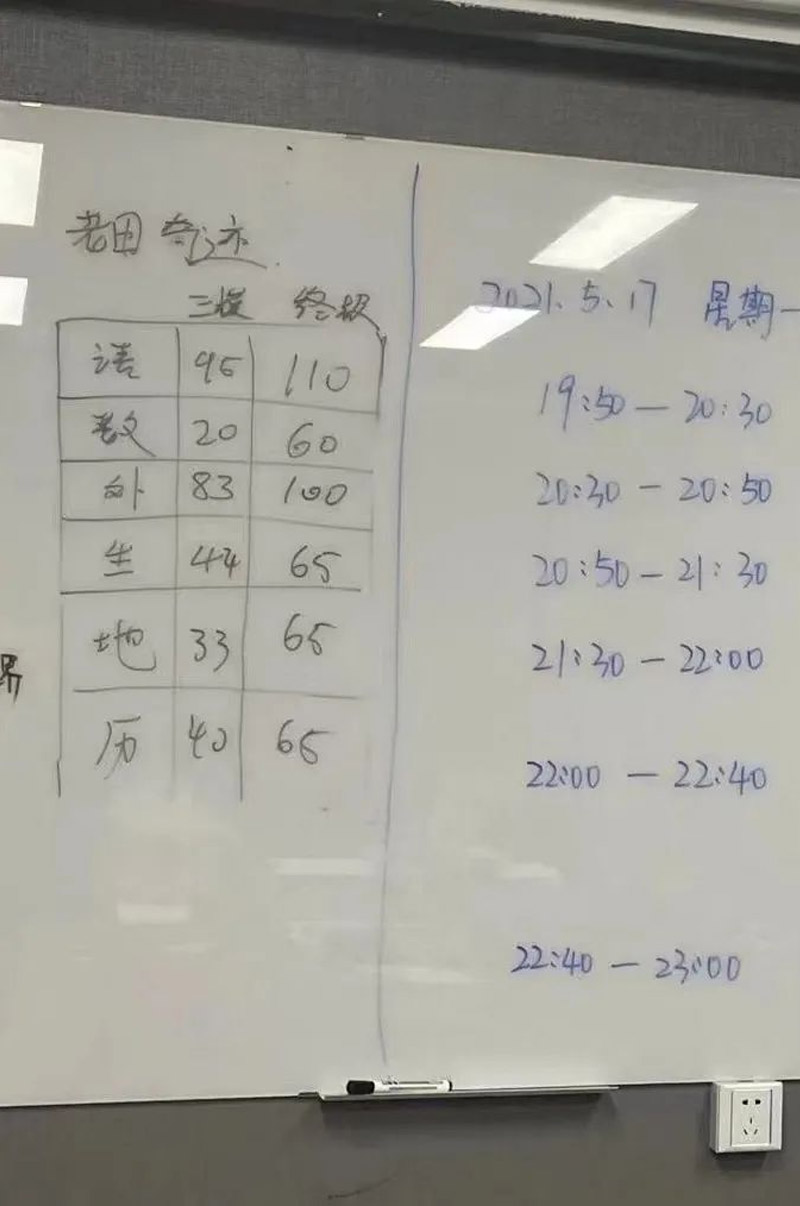 老田奇迹
三模 终极
语 95 110
数 20 60
外 83 100
生 44 65
地 33 65
历 40 65
2021.5.17 星期一
19:50—20:30
20:30—20:50
20:50—21:30
21:30—22:00
22:00—22:40
22:40—23:00